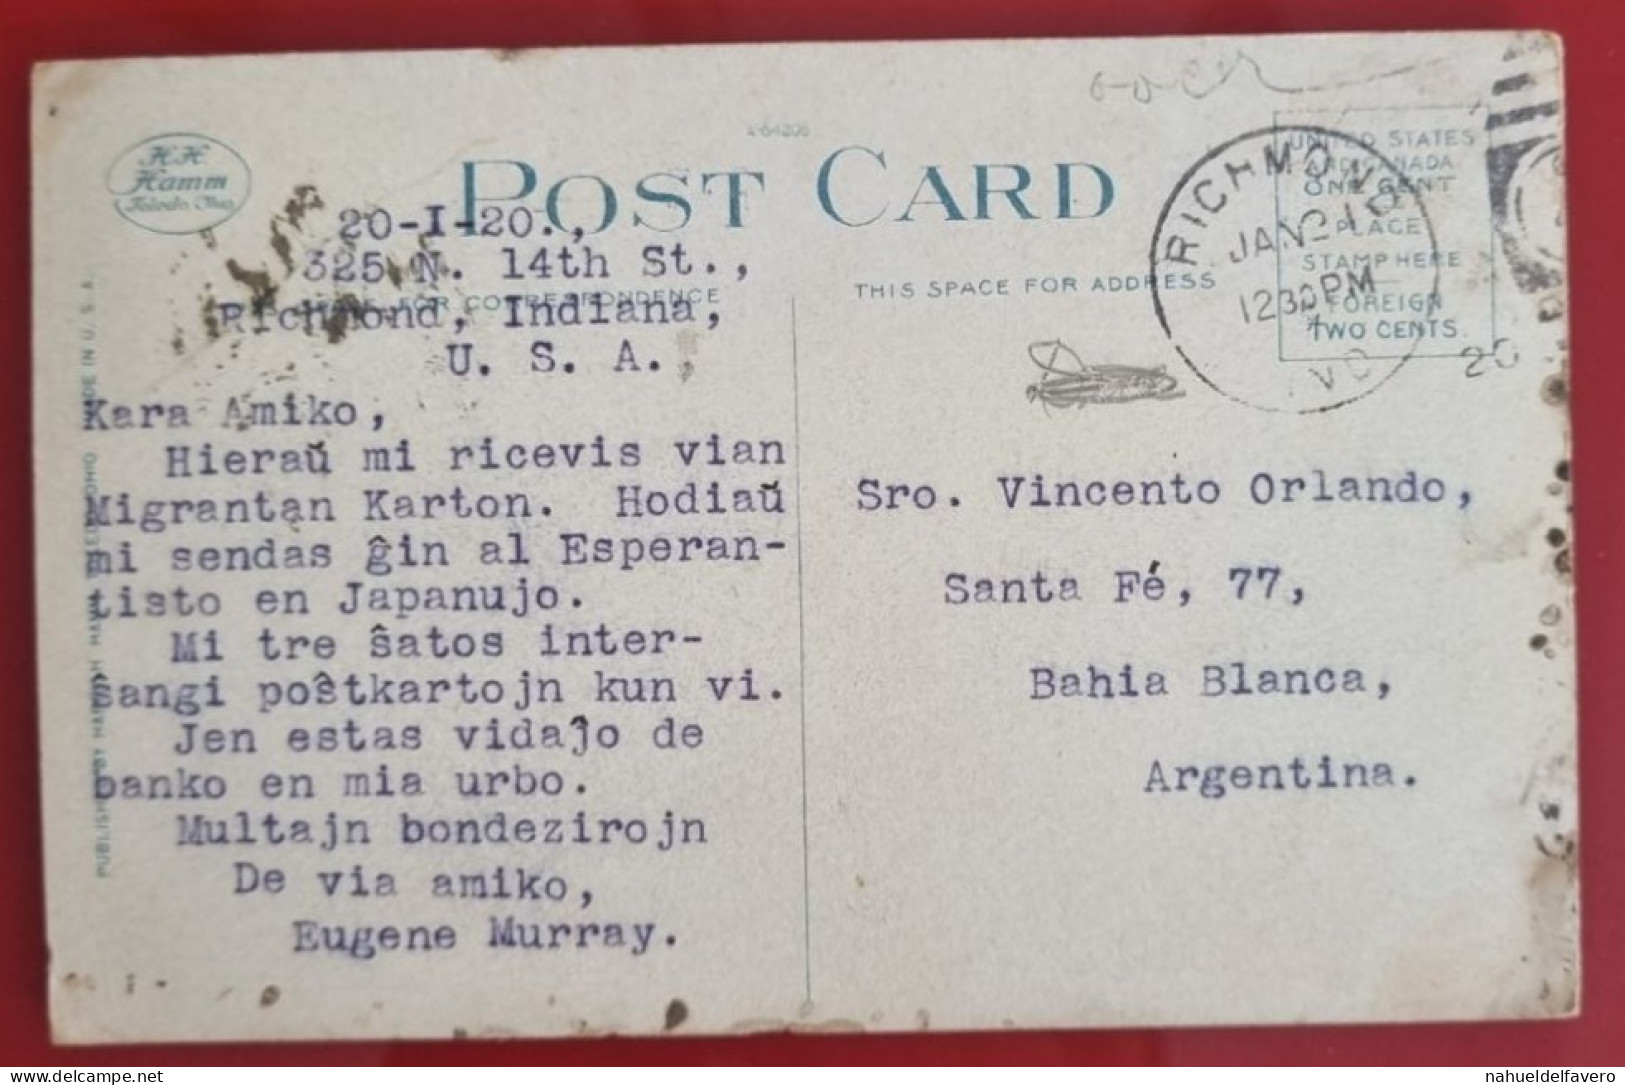 H.H.
Hamm
Toledo, Ohio
A-64206
POST CARD
20-I-20.,
325 N. 14th St.,
SPACE FOR CORRESPONDENCE
Richmond, Indiana,
U. S. A.
Kara Amiko,
Hieraŭ mi ricevis vian
Migrantan Karton. Hodiaŭ
mi sendas ĝin al Esperan-
tisto en Japanujo.
Mi tre ŝatos inter-
ŝangi poŝtkartojn kun vi.
Jen estas vidaĵo de
banko en mia urbo.
Multajn bondezirojn
De via amiko,
Eugene Murray.
MADE IN U. S. A.
THIS SPACE FOR ADDRESS
RICHMOND
JAN 21
12 30 PM
20
UNITED STATES
AND CANADA
ONE CENT
PLACE
STAMP HERE
FOREIGN
TWO CENTS.
Sro. Vincento Orlando,
Santa Fé, 77,
Bahia Blanca,
Argentina.
delcampe.net
nahueldelfavero